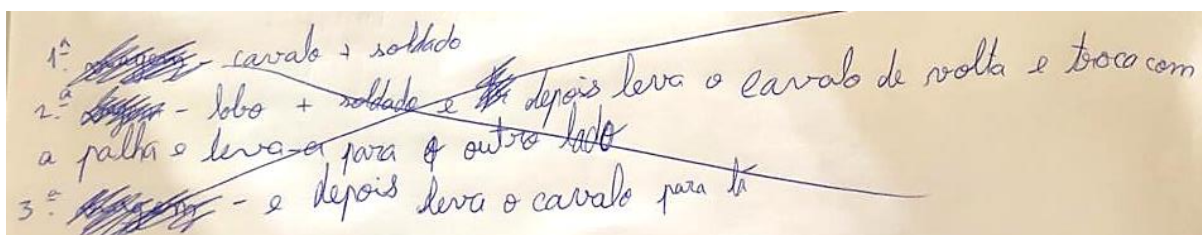 1ª - cavalo + soldado
2ª - lobo + soldado e depois leva o cavalo de volta e troca com
a palha e leva-a para o outro lado
3ª - e depois leva o cavalo para lá